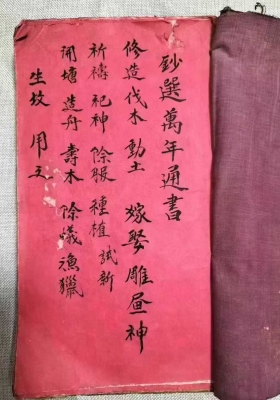 鈔選萬年通書
修造伐木動土 嫁娶雕畫神
祈禱 祀神 除服 種植 試新
開塘 造舟 壽木 除蟻 漁獵
生坟 用立